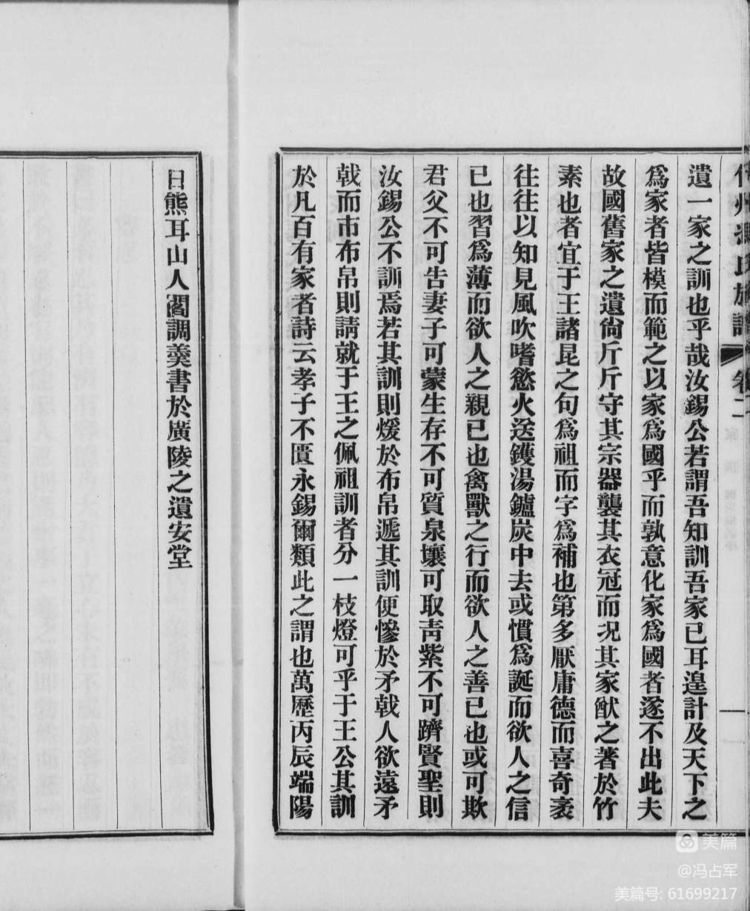 代州馮氏族譜 卷二
遺一家之訓也乎哉汝錫公若謂吾知訓吾家已耳遑計及天下之
爲家者皆模而範之以家爲國乎而孰意化家爲國者遂不出此夫
故國舊家之遺尙斤斤守其宗器襲其衣冠而況其家猷之著於竹
素也者宜于王諸昆之句爲祖而字爲補也第多厭庸德而喜奇袤
往往以知見風吹嗜慾火送鑊湯鑪炭中去或慣爲誕而欲人之信
已也習爲薄而欲人之親已也禽獸之行而欲人之善已也或可欺
君父不可告妻子可蒙生存不可質泉壤可取靑紫不可躋賢聖則
汝錫公不訓焉若其訓則煖於布帛遞其訓便慘於矛戟人欲遠矛
戟而市布帛則請就于王之佩祖訓者分一枝燈可乎于王公其訓
於凡百有家者詩云孝子不匱永錫爾類此之謂也萬歷丙辰端陽
日熊耳山人閻調羹書於廣陵之遺安堂
美篇
@冯占军
美篇号: 61699217